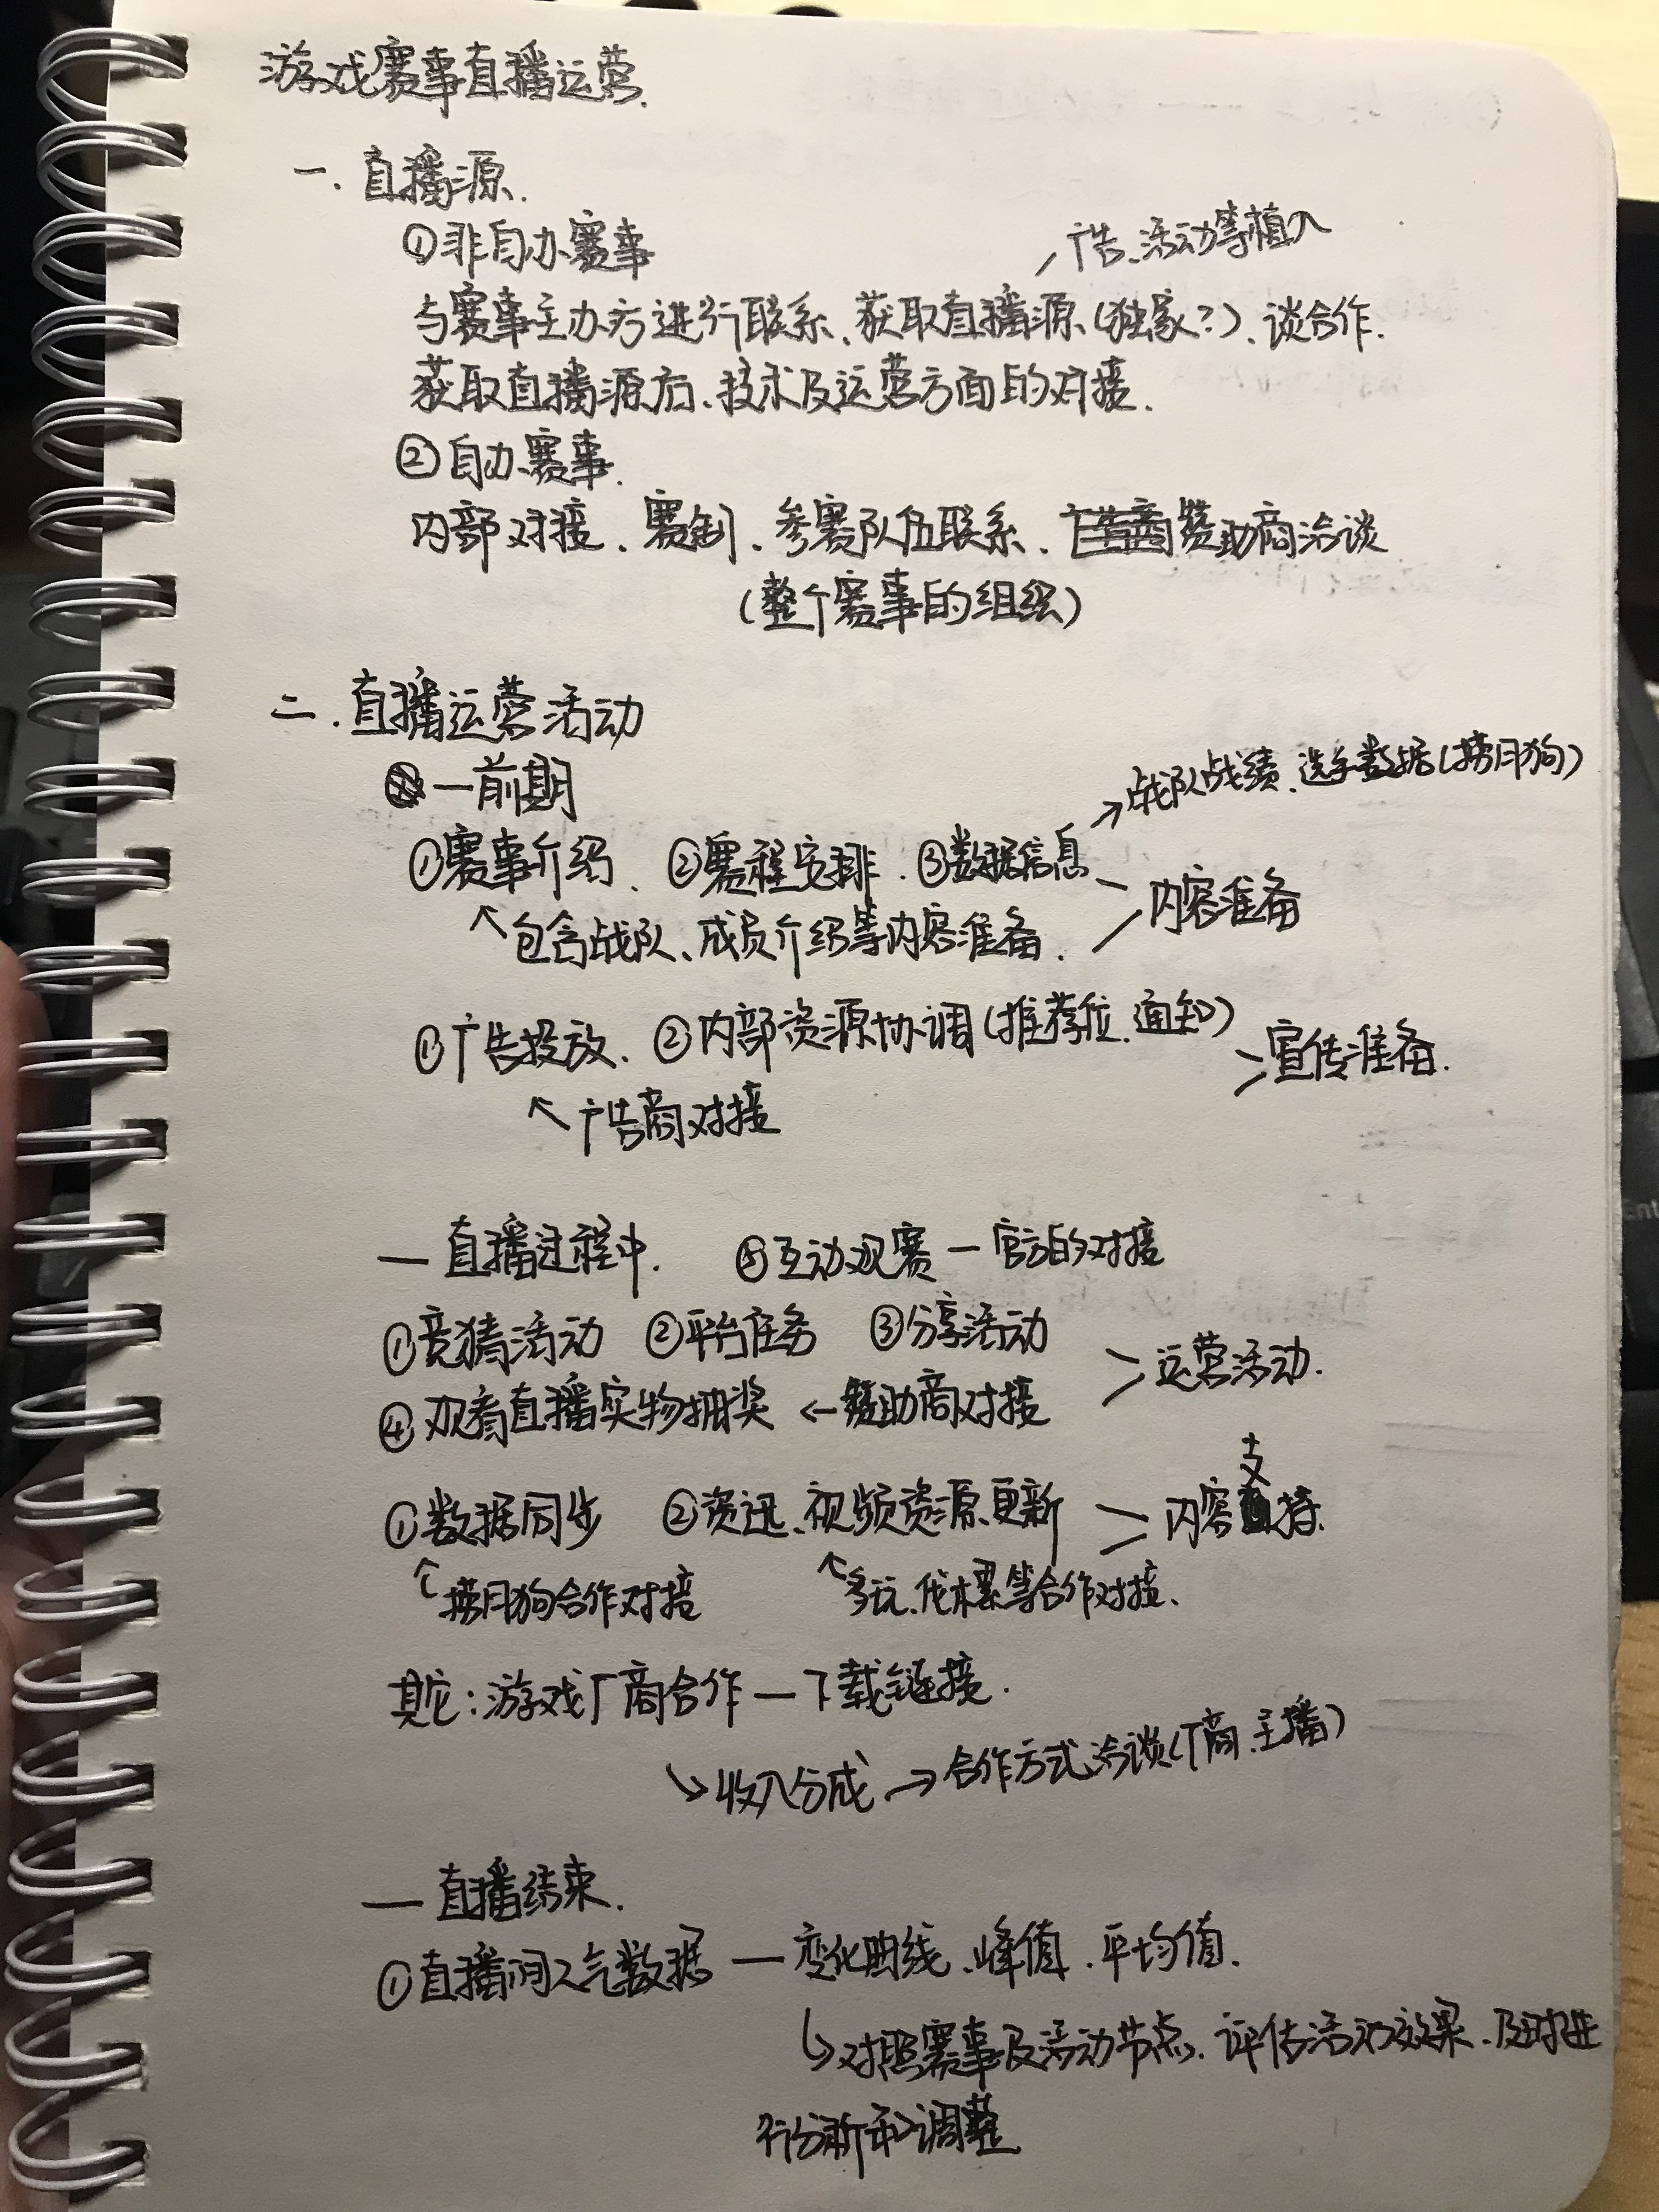 游戏赛事直播运营.
一. 直播源.
①非自办赛事
广告、活动等植入
与赛事主办方进行联系、获取直播源(独家?)、谈合作.
获取直播源后、技术及运营方面的对接.
②自办赛事.
内部对接、赛制、参赛队伍联系、赞助商洽谈
(整个赛事的组织)
二. 直播运营活动
—前期
→战队战绩、选手数据(捞月狗)
①赛事介绍、②赛程安排、③数据信息
内容准备
↖包含战队、成员介绍等内容准备.
①广告投放、②内部资源协调(推荐位、通知)
宣传准备.
↖广告商对接
— 直播过程中. ⑤互动观赛 — 官方的对接
①竞猜活动 ②平台任务 ③分享活动
运营活动.
④观看直播实物抽奖 ← 赞助商对接
①数据同步 ②资讯、视频资源更新 内容支持.
↖捞月狗合作对接 ↖多玩、伐木累等合作对接、
其它:游戏厂商合作 — 下载链接.
↘收入分成 → 合作方式洽谈(厂商、主播)
— 直播结束.
①直播间人气数据 — 变化曲线、峰值、平均值.
↳对照赛事及活动节点、评估活动效果、及时进
行分析和调整